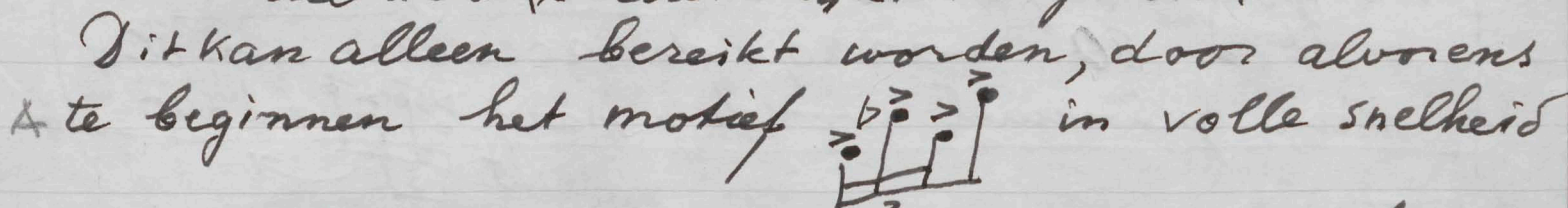 Dit kan alleen bereikt worden, door alvorens
te beginnen het motief in volle snelheid